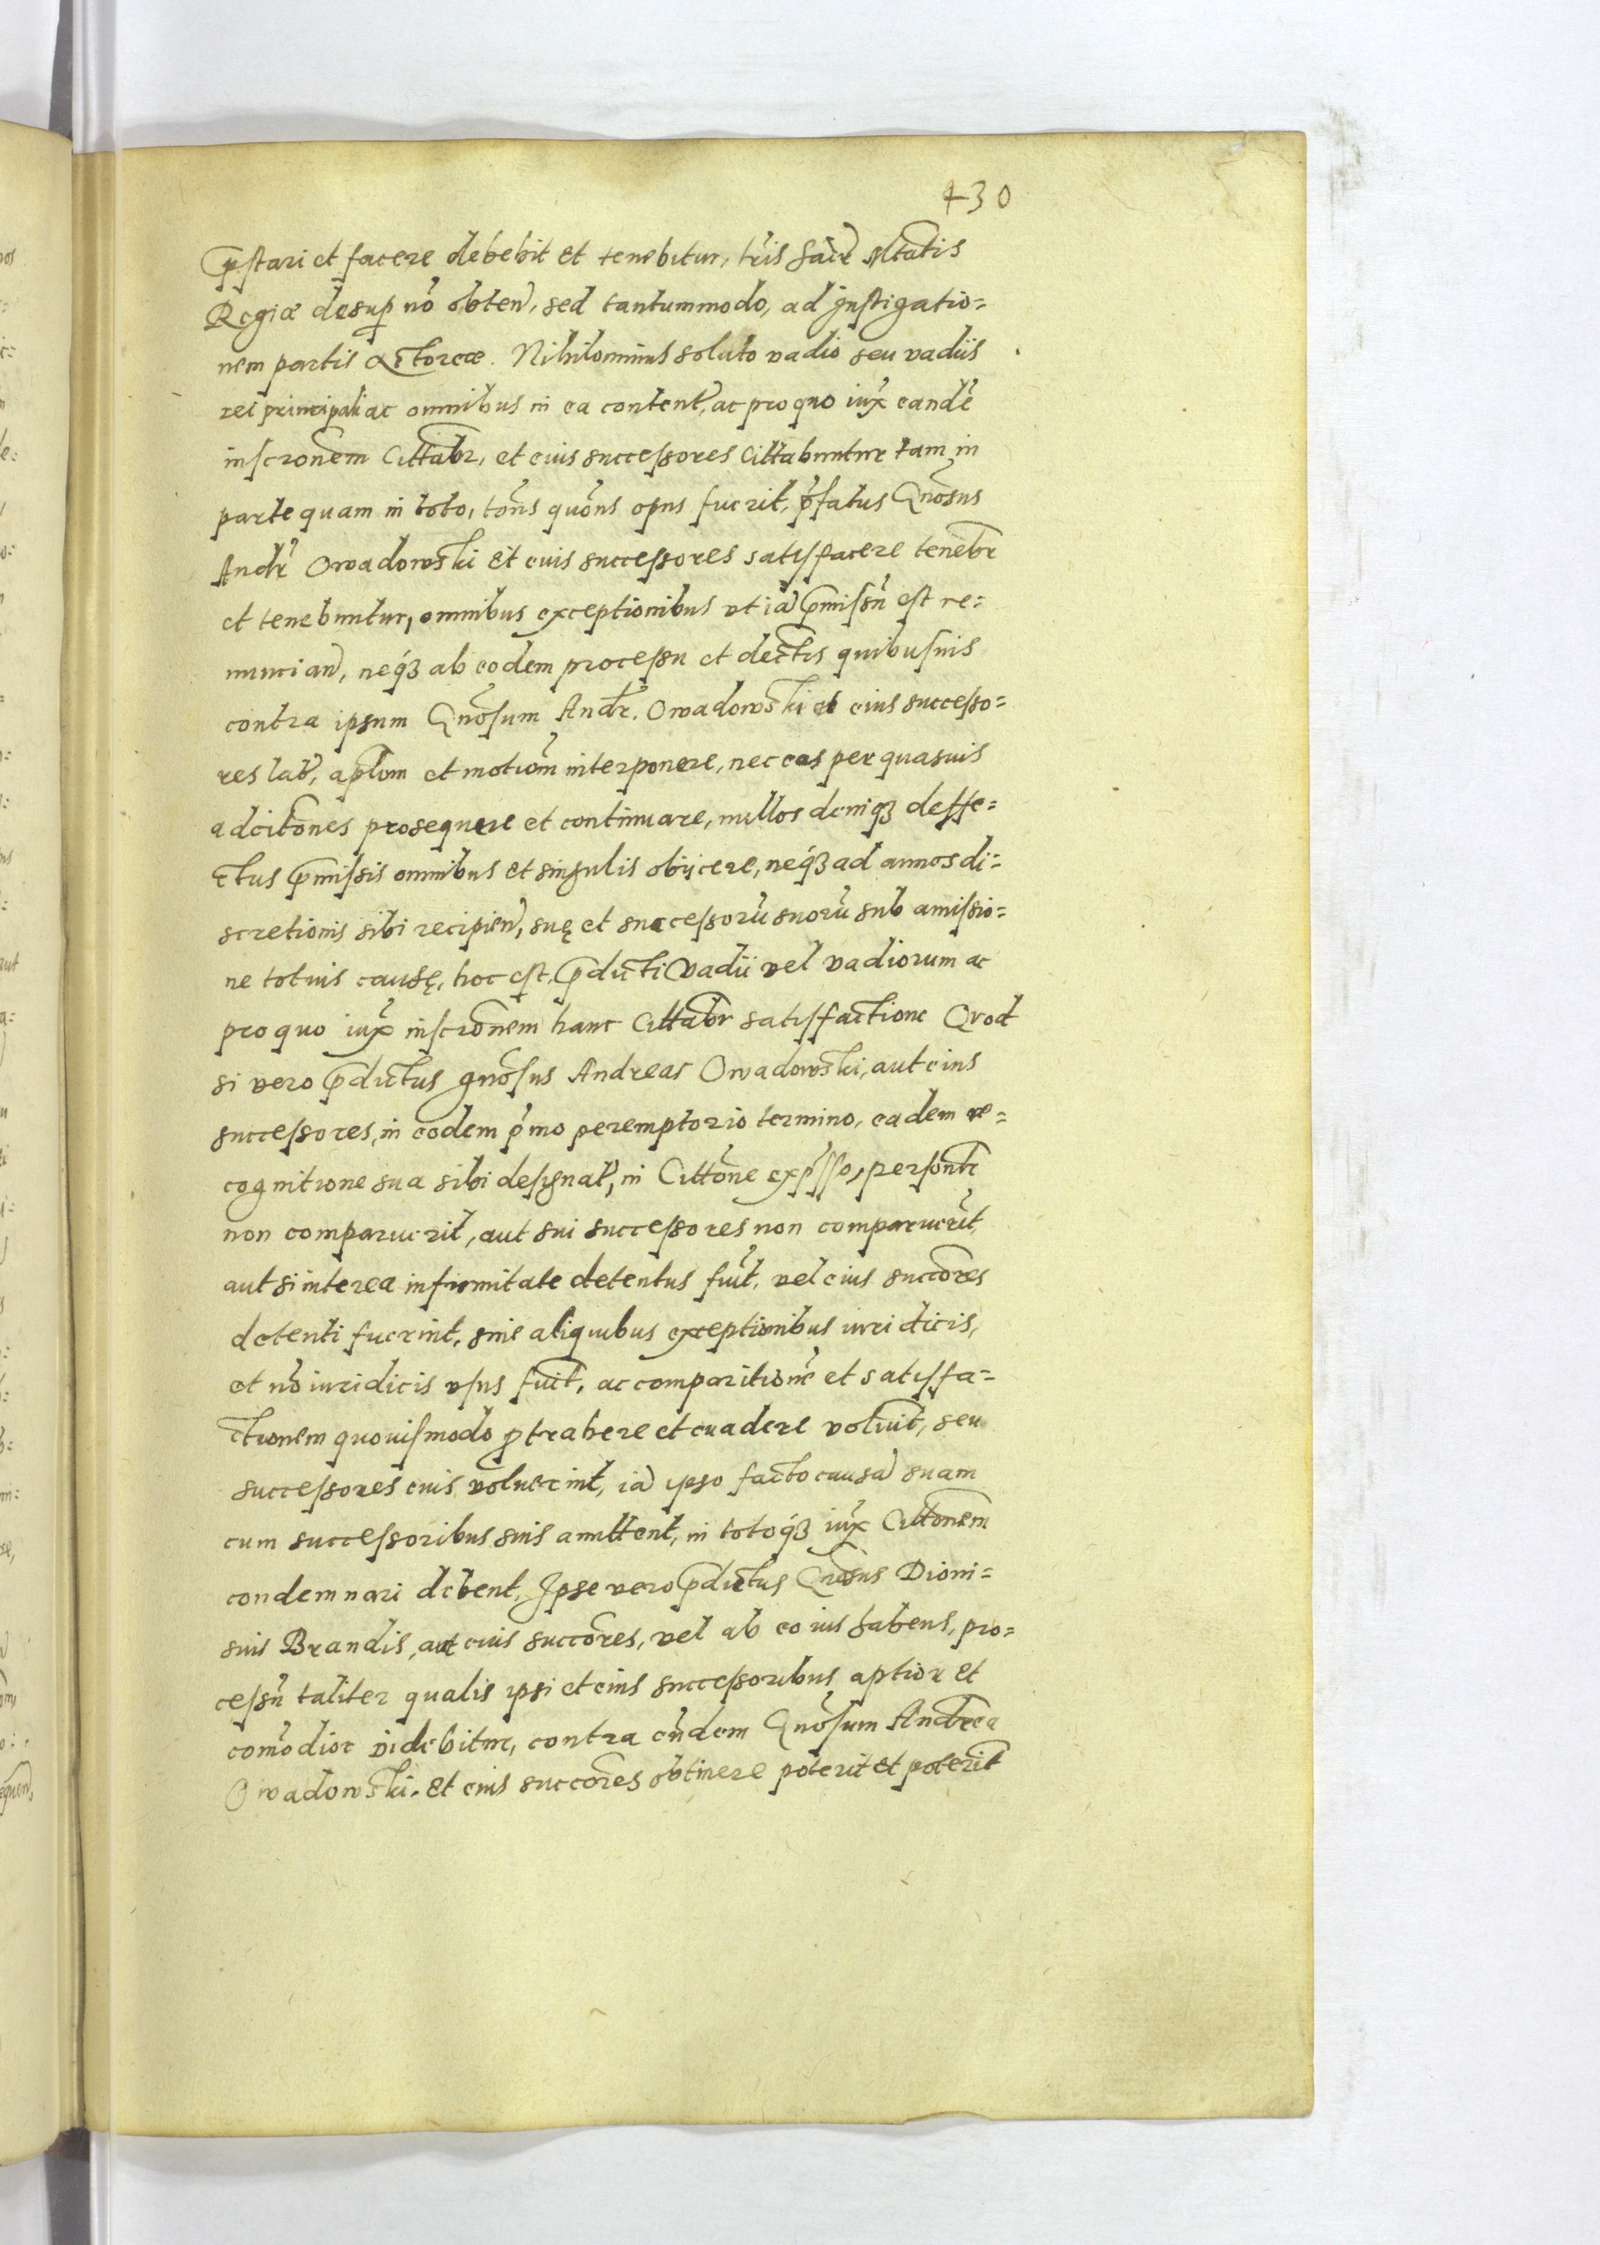 430
pstari et facere debebit et tenebitur, lris Sacr Mtatis
Regiæ desup nõ obten, sed tantummodo, ad instigatio=
nem partis Actoreæ. Nihilominus soluto vadio seu vadiis
rei principali ac omnibus in ea content, ac pro quo iux eandẽ
inscronem Cittabr, et eius successores cittabuntur tam in
parte quam in toto, tons quõns opus fuerit, p̃fatus Gnõsus
Andr̃ Owadowski et eius successores satisfacere tenebr
et tenebuntur, omnibus exceptionibus vt iã pmissũ est re=
nuncian, neq́ʒ ab eodem processu et dectis quibusuis
contra ipsum Gnõsum Andr. Owadowski et eius successo=
res lat, aplom et motiom interponere, nec eas per quasuis
adcitones prosequere et continuare, nullos deniqʒ deffe=
ctus pmissis omnibus et singulis obijcere, neq́ʒ ad annos di=
scretionis sibi recipien, suę et successorũ suorũ sub amissio=
ne totius causę, hoc est, pdicti Vadii vel vadiorum ac
pro quo iux inscronem hanc Cittabr satisfactione Qvod
si vero pdictus gnõsus Andreas Owadowski, aut eius
successores, in eodem p̃mo peremptorio termino, eadem re=
cognitione sua sibi designat, in Cittõne exp̃sso, personlr
non comparuerit, aut sui successores non comparuerĩt,
aut si interea infirmitate detentus fuĩt, vel eius succores
detenti fuerint, siue aliquibus exceptionibus iuridicis,
et nõ iuridicis vsus fuit, ac comparitionẽ et satisfa=
ctionem quouismodo ptrahere et euadere voluit, seu
successores eius voluerint, iã ipso facto causã suam
cum successoribus suis amittent, in totoq́ʒ iux Cittonem
condemnari debent, Ipse vero pdictus Gnosus Dioni=
sius Brandis, aut eius succores, vel ab eo ius habens, pro=
cessũ taliter qualis ipsi et eius successoribus aptior et
comõdior videbitur, contra eũdem Gnõsum Andrea
Owadowski, et eius succores obtinere poterit et poterint